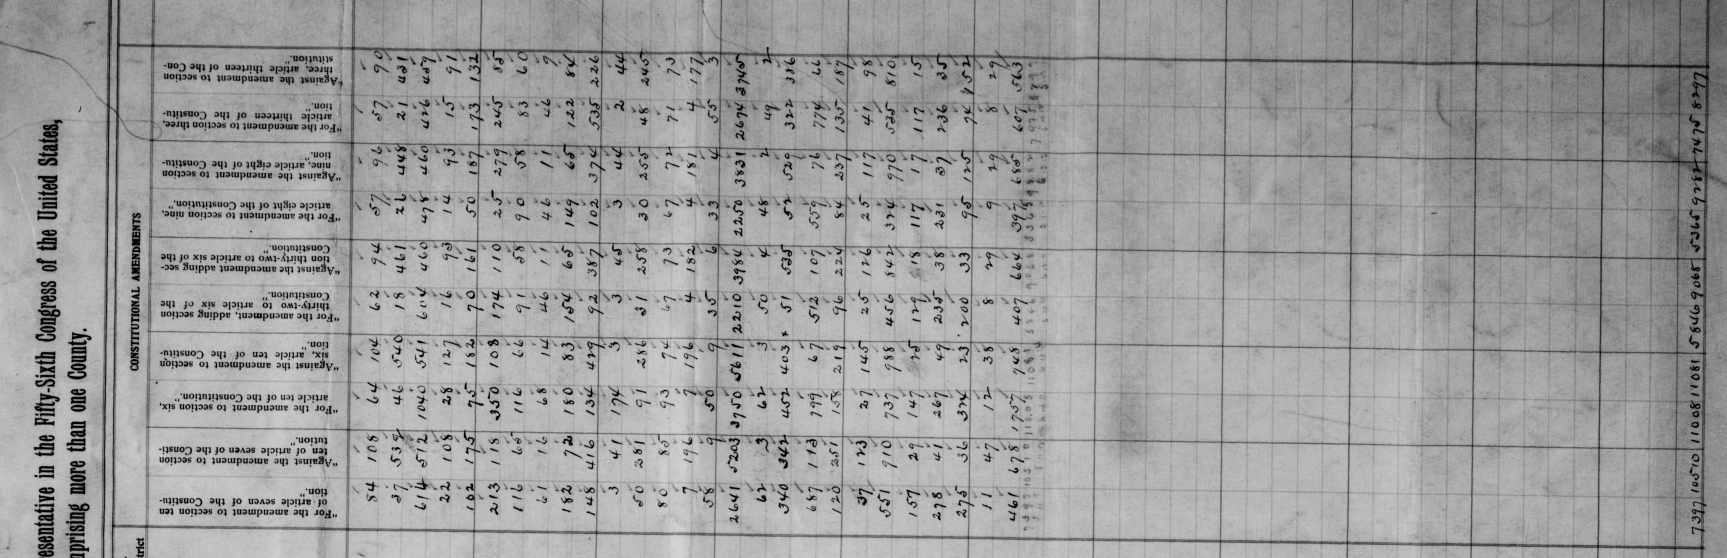 esentative in the Fifty-Sixth Congress of the United States,
mprising more than one County.
CONSTITUTIONAL AMENDMENTS
trict
"For the amendment to section ten of article seven of the Constitution."
"Against the amendment to section ten of article seven of the Constitution."
"For the amendment to section six, article ten of the Constitution."
"Against the amendment to section six, article ten of the Constitution."
"For the amendment, adding section thirty-two to article six of the Constitution."
"Against the amendment adding section thirty-two to article six of the Constitution."
"For the amendment to section nine, article eight of the Constitution."
"Against the amendment to section nine, article eight of the Constitution."
"For the amendment to section three, article thirteen of the Constitution."
"Against the amendment to section three, article thirteen of the Constitution."
84 108 64 104 62 94 57 96 57 90
37 539 46 540 18 461 26 448 21 431
614 512 1040 541 604 460 478 460 426 459
22 108 28 127 16 93 14 93 15 91
102 175 75 182 70 161 50 187 173 132
213 118 350 108 174 110 25 279 245 85
116 65 116 66 91 58 90 58 83 60
61 16 68 14 46 11 46 11 46 9
182 72 180 83 154 65 149 65 122 84
148 416 134 429 92 387 102 374 535 226
3 41 174 3 3 45 3 44 2 44
50 281 91 286 31 258 30 255 48 245
80 85 93 74 67 73 67 72 71 73
7 196 7 196 4 182 4 181 4 177
58 9 50 9 35 6 33 4 55 3
2641 5203 3750 5611 2210 3984 2250 3831 2674 3745
62 3 62 3 50 4 48 2 49 2
340 342 452 403 51 535 52 529 322 336
687 113 799 67 512 107 559 76 774 66
120 251 158 219 96 224 84 237 135 187
37 123 27 145 25 126 25 117 41 98
551 910 737 988 456 842 324 970 535 810
157 29 147 25 129 18 117 17 117 15
278 41 267 49 235 38 231 37 236 35
275 36 324 23 200 33 95 125 74 152
11 47 12 38 8 29 9 29 8 29
461 678 1757 748 407 664 397 685 607 563
7397 10510 11008 11081 5846 9068 5365 9282 7475 8297